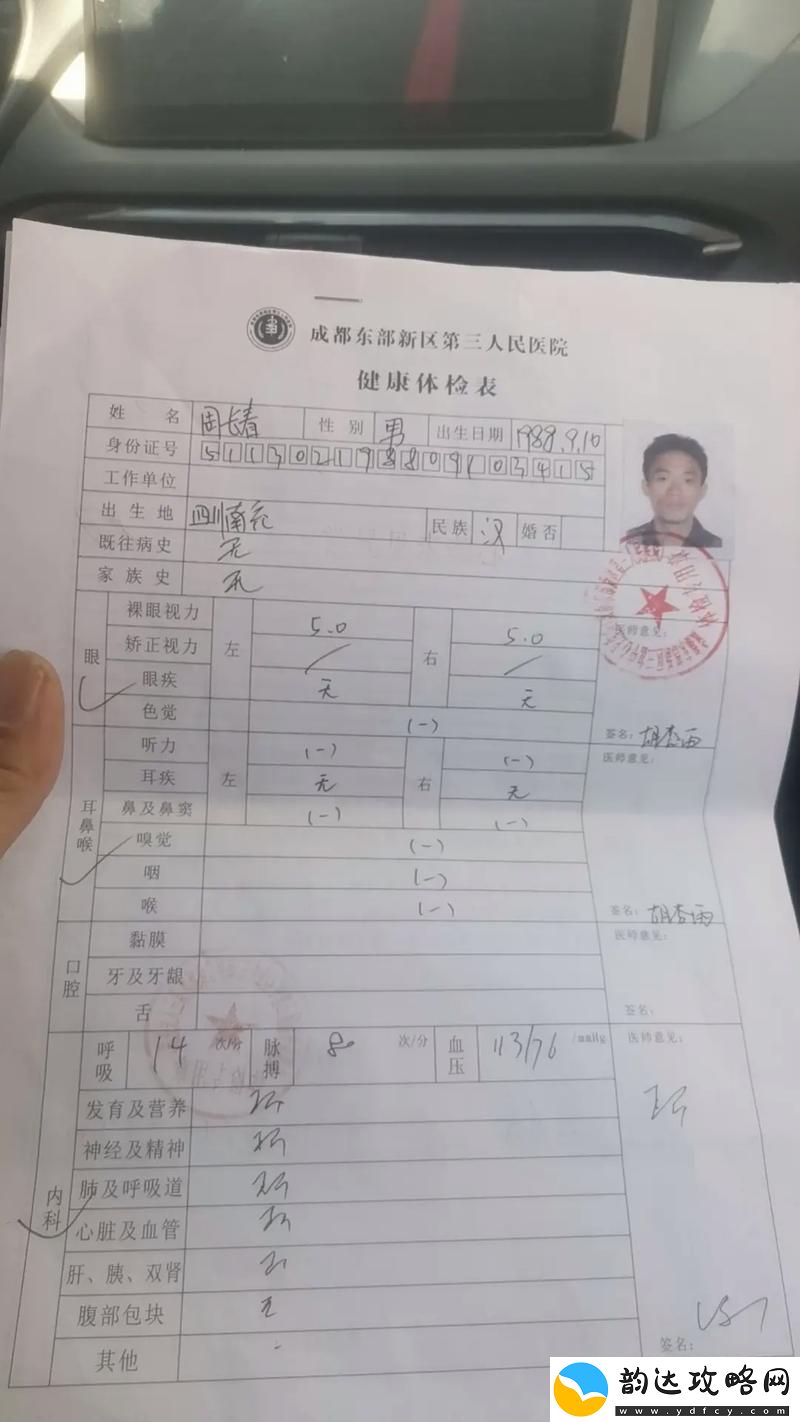 成都东部新区第三人民医院
健康体检表
姓名 周长春 性别 男 出生日期 1988.9.10
身份证号 511302198809103415
工作单位
出生地 四川南充 民族 汉 婚否
既往病史 无
家族史 无
眼 裸眼视力 左 5.0 右 5.0 医师意见:
矫正视力 / /
眼疾 无 无
色觉 (-) 签名: 胡杏雨
耳鼻喉 听力 左 (-) 右 (-) 医师意见:
耳疾 无 无
鼻及鼻窦 (-) (-)
嗅觉 (-)
咽 (-)
喉 (-) 签名: 胡杏雨
口腔 黏膜 医师意见:
牙及牙龈
舌 签名:
内科 呼吸 14 次/分 脉搏 80 次/分 血压 113/76 /mmHg 医师意见:
发育及营养
神经及精神
肺及呼吸道
心脏及血管
肝、胰、双肾
腹部包块 无
其他 - 签名:
韵达攻略网
www.ydfcy.com